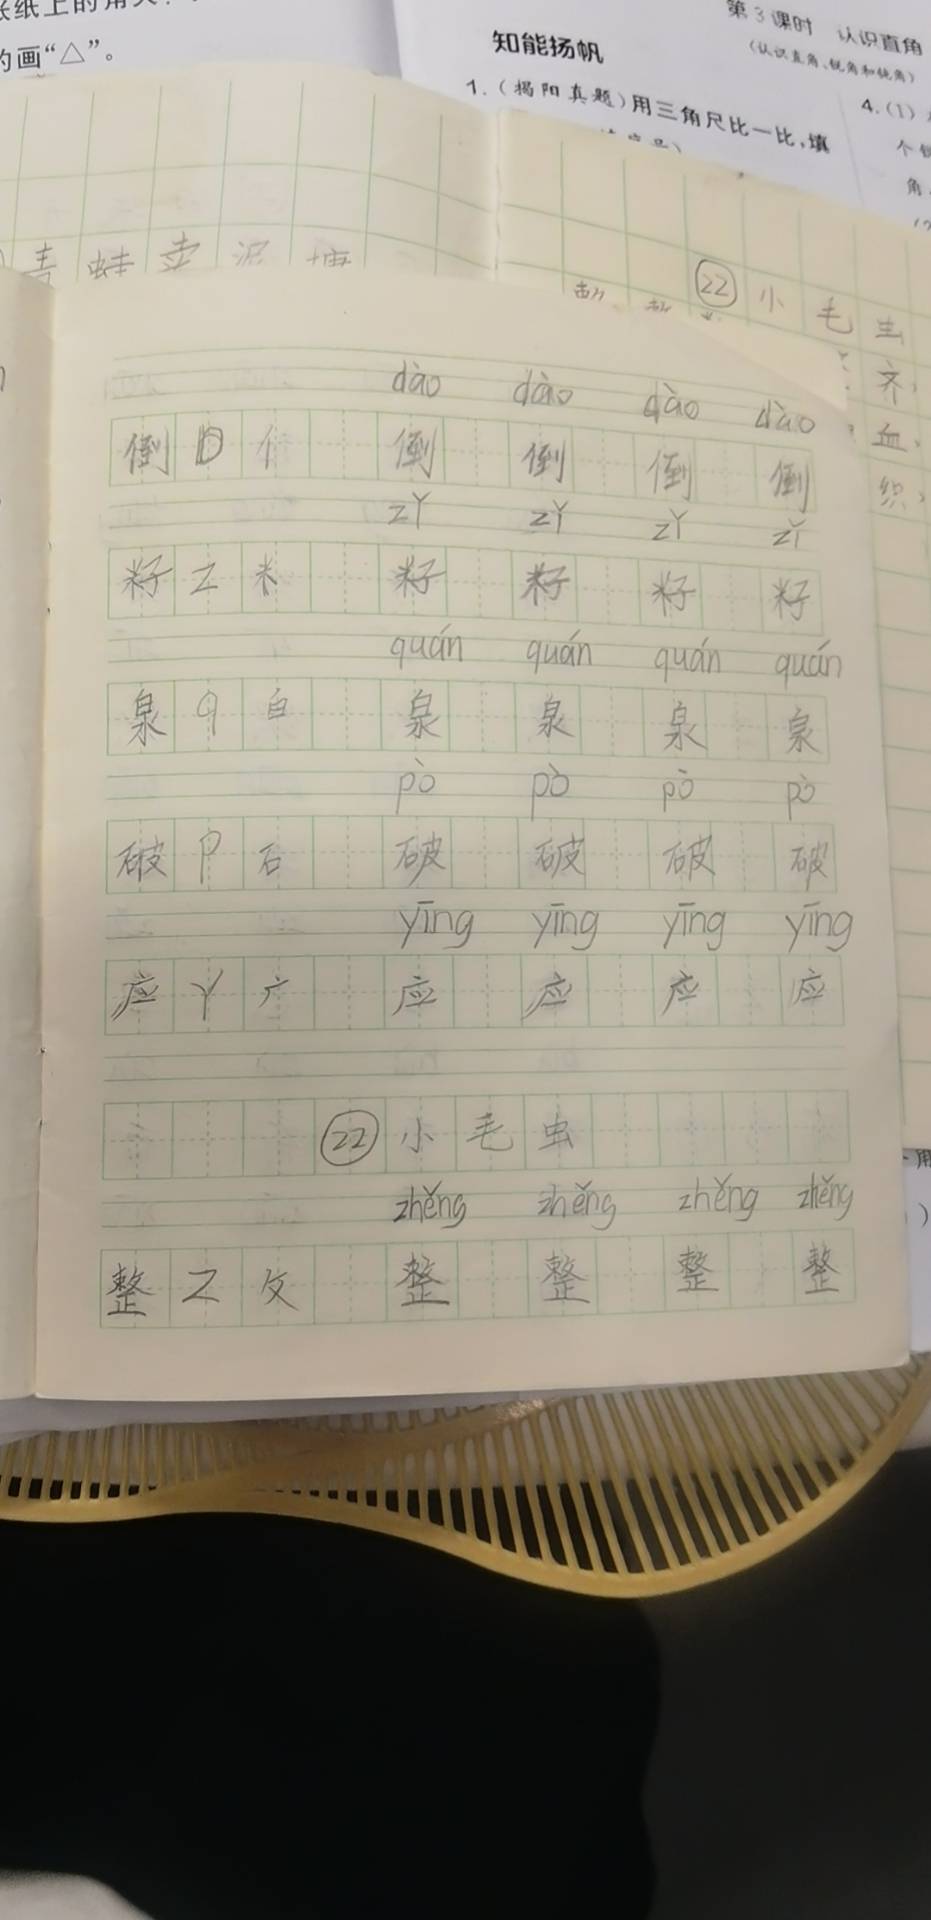 的画“△”。
第3课时 认识直角
(认识直角、锐角和钝角)
知能扬帆
1.(揭阳真题)用三角尺比一比,填
4.(1)
个
角
青蛙卖泥塘
22 小毛虫
齐,
血,
织,
dào dào dào dào
倒 D 亻 倒 倒 倒 倒
zǐ zǐ zǐ zǐ
籽 Z 米 籽 籽 籽 籽
quán quán quán quán
泉 q 白 泉 泉 泉 泉
pò pò pò pò
破 P 石 破 破 破 破
yīng yīng yīng yīng
应 Y 广 应 应 应 应
22 小毛虫
zhěng zhěng zhěng zhěng
整 Z 攵 整 整 整 整
用
)